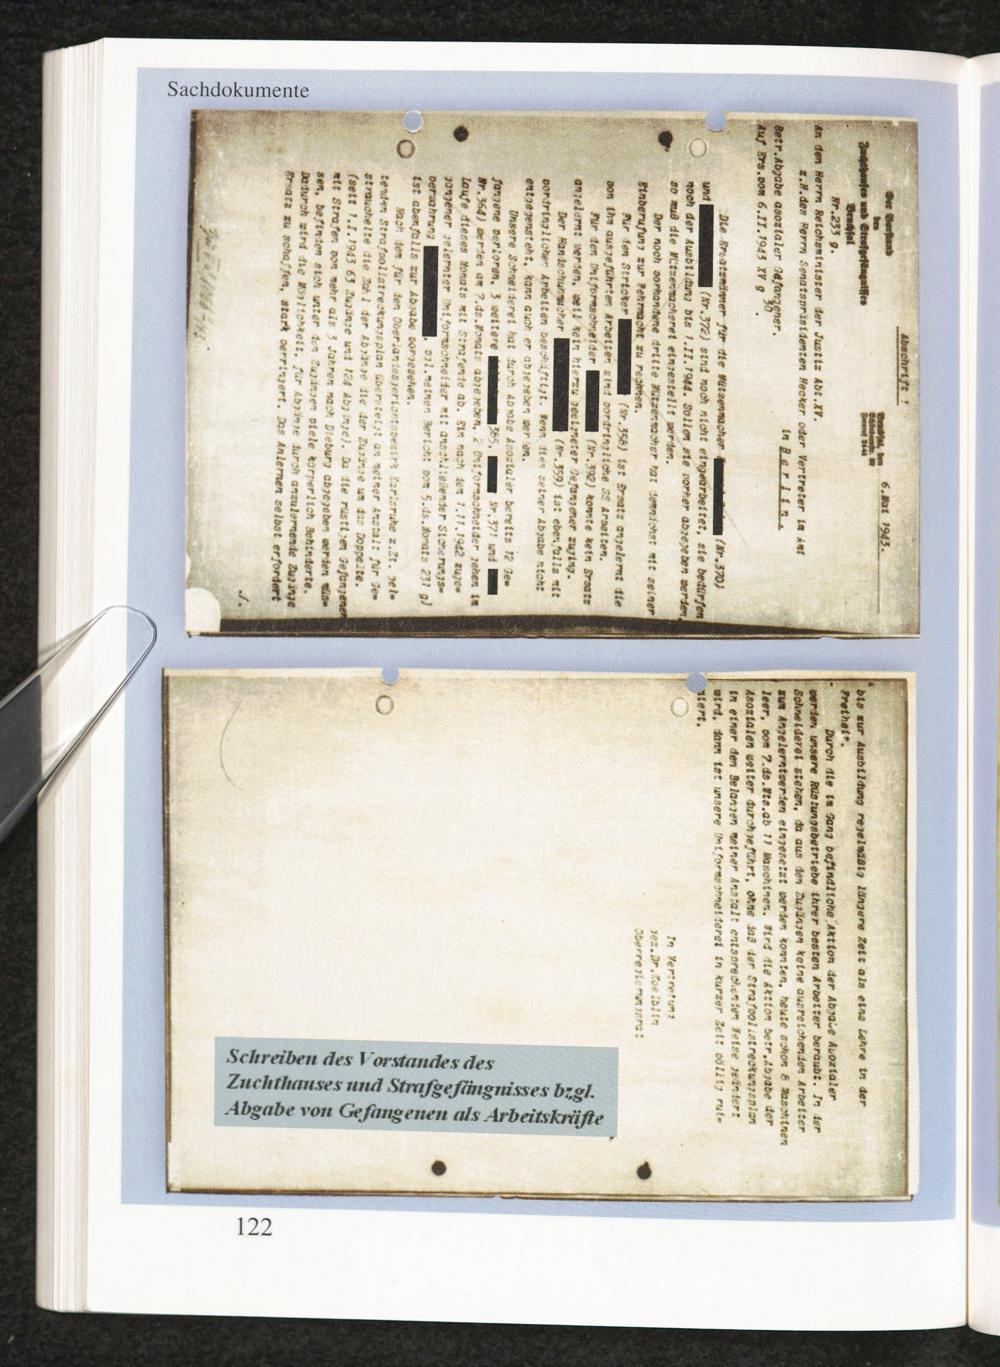 Sachdokumente
Abschrift !
Der Vorstand
des
Zuchthauses und Strafgefängnisses
Bruchsal
Nr.233 g.
6.Mai 1943.
An den Herrn Reichsminister der Justiz Abt.XV.
z.H.des Herrn Senatspräsidenten Hecker oder Vertreter im Amt
in Berlin.
Betr.Abgabe asozialer Gefangener.
Auf Ers.vom 6.II.1943 XV g 30.
Die Ersatzmänner für die Mützenmacher (Nr.370)
und (Nr.372) sind noch nicht eingearbeitet, sie bedürfen
noch der Ausbildung bis 1.II.1944. Sollen sie vorher abgegeben werden,
so muß die Mützenmacherei eingestellt werden.
Der noch vorhandene dritte Mützenmacher hat demnächst mit seiner
Einberufung zur Wehrmacht zu rechnen.
Für den Stricker (Nr.358) ist Ersatz angelernt die
von ihm ausgeführten Arbeiten sind vordringliche SS Arbeiten.
Für den Uniformschneider (Nr.392) konnte kein Ersatz
angelernt werden, weil kein hierzu geeigneter Gefangener zuging.
Der Handschuhmacher (Nr.359) ist ebenfalls mit
vordringlichen Arbeiten beschäftigt. Wenn dies seiner Abgabe nicht
entgegensteht, kann auch er abgegeben werden.
Unsere Schneiderei hat durch Abgabe Asozialer bereits 12 Ge=
fangene verloren, 3 weitere 385, Nr.371 und
Nr.364) werden am 7.ds.Monats abgegeben, 2 Uniformschneider gehen im
Laufe dieses Monats mit Strafende ab. Ein nach dem 1.11.1942 zuge=
gangener gelernter Uniformschneider mit anschließender Sicherungs=
verwahrung vgl.meinen Bericht vom 5.ds.Monats 231 g)
ist ebenfalls zur Abgabe vorgesehen.
Nach dem für den Oberlandesgerichtsbezirk Karlsruhe z.Zt. gel=
tenden Strafvollstreckungsplan übersteigt an meiner Anstalt für Ge=
strauchelte die Zahl der Abgänge die der Zugänge um das Doppelte.
(seit 1.I.1943 63 Zugänge und 124 Abgänge). Da die rüstigen Gefangenen
mit Strafen von mehr als 3 Jahren nach Dieburg abgegeben werden müs=
sen, befinden sich unter den Zugängen viele körperlich Behinderte.
Dadurch wird die Möglichkeit, für Abgänge durch anzulernende Zugänge
Ersatz zu schaffen, stark verringert. Das Anlernen selbst erfordert
bis zur Ausbildung regelmäßig längere Zeit als eine Lehre in der
Freiheit.
Durch die im Gang befindliche Aktion der Abgabe Asozialer
werden unsere Rüstungsbetriebe ihrer besten Arbeiter beraubt. In der
Schneiderei stehen, da aus den Zugängen keine ausreichenden Arbeiter
zum Angelerntwerden eingesetzt werden konnten, heute schon 8 Maschinen
leer, vom 7.ds.Mts.ab 11 Maschinen. Wird die Aktion betr.Abgabe der
Asozialen weiter durchgeführt, ohne daß der Strafvollstreckungsplan
in einer den Belangen meiner Anstalt entsprechenden Weise geändert
wird, dann ist unsere Uniformschneiderei in kurzer Zeit völlig rui=
niert.
In Vertretung
gez.Dr.Koelblin
Oberregierungsrat
Schreiben des Vorstandes des
Zuchthauses und Strafgefängnisses bzgl.
Abgabe von Gefangenen als Arbeitskräfte
122